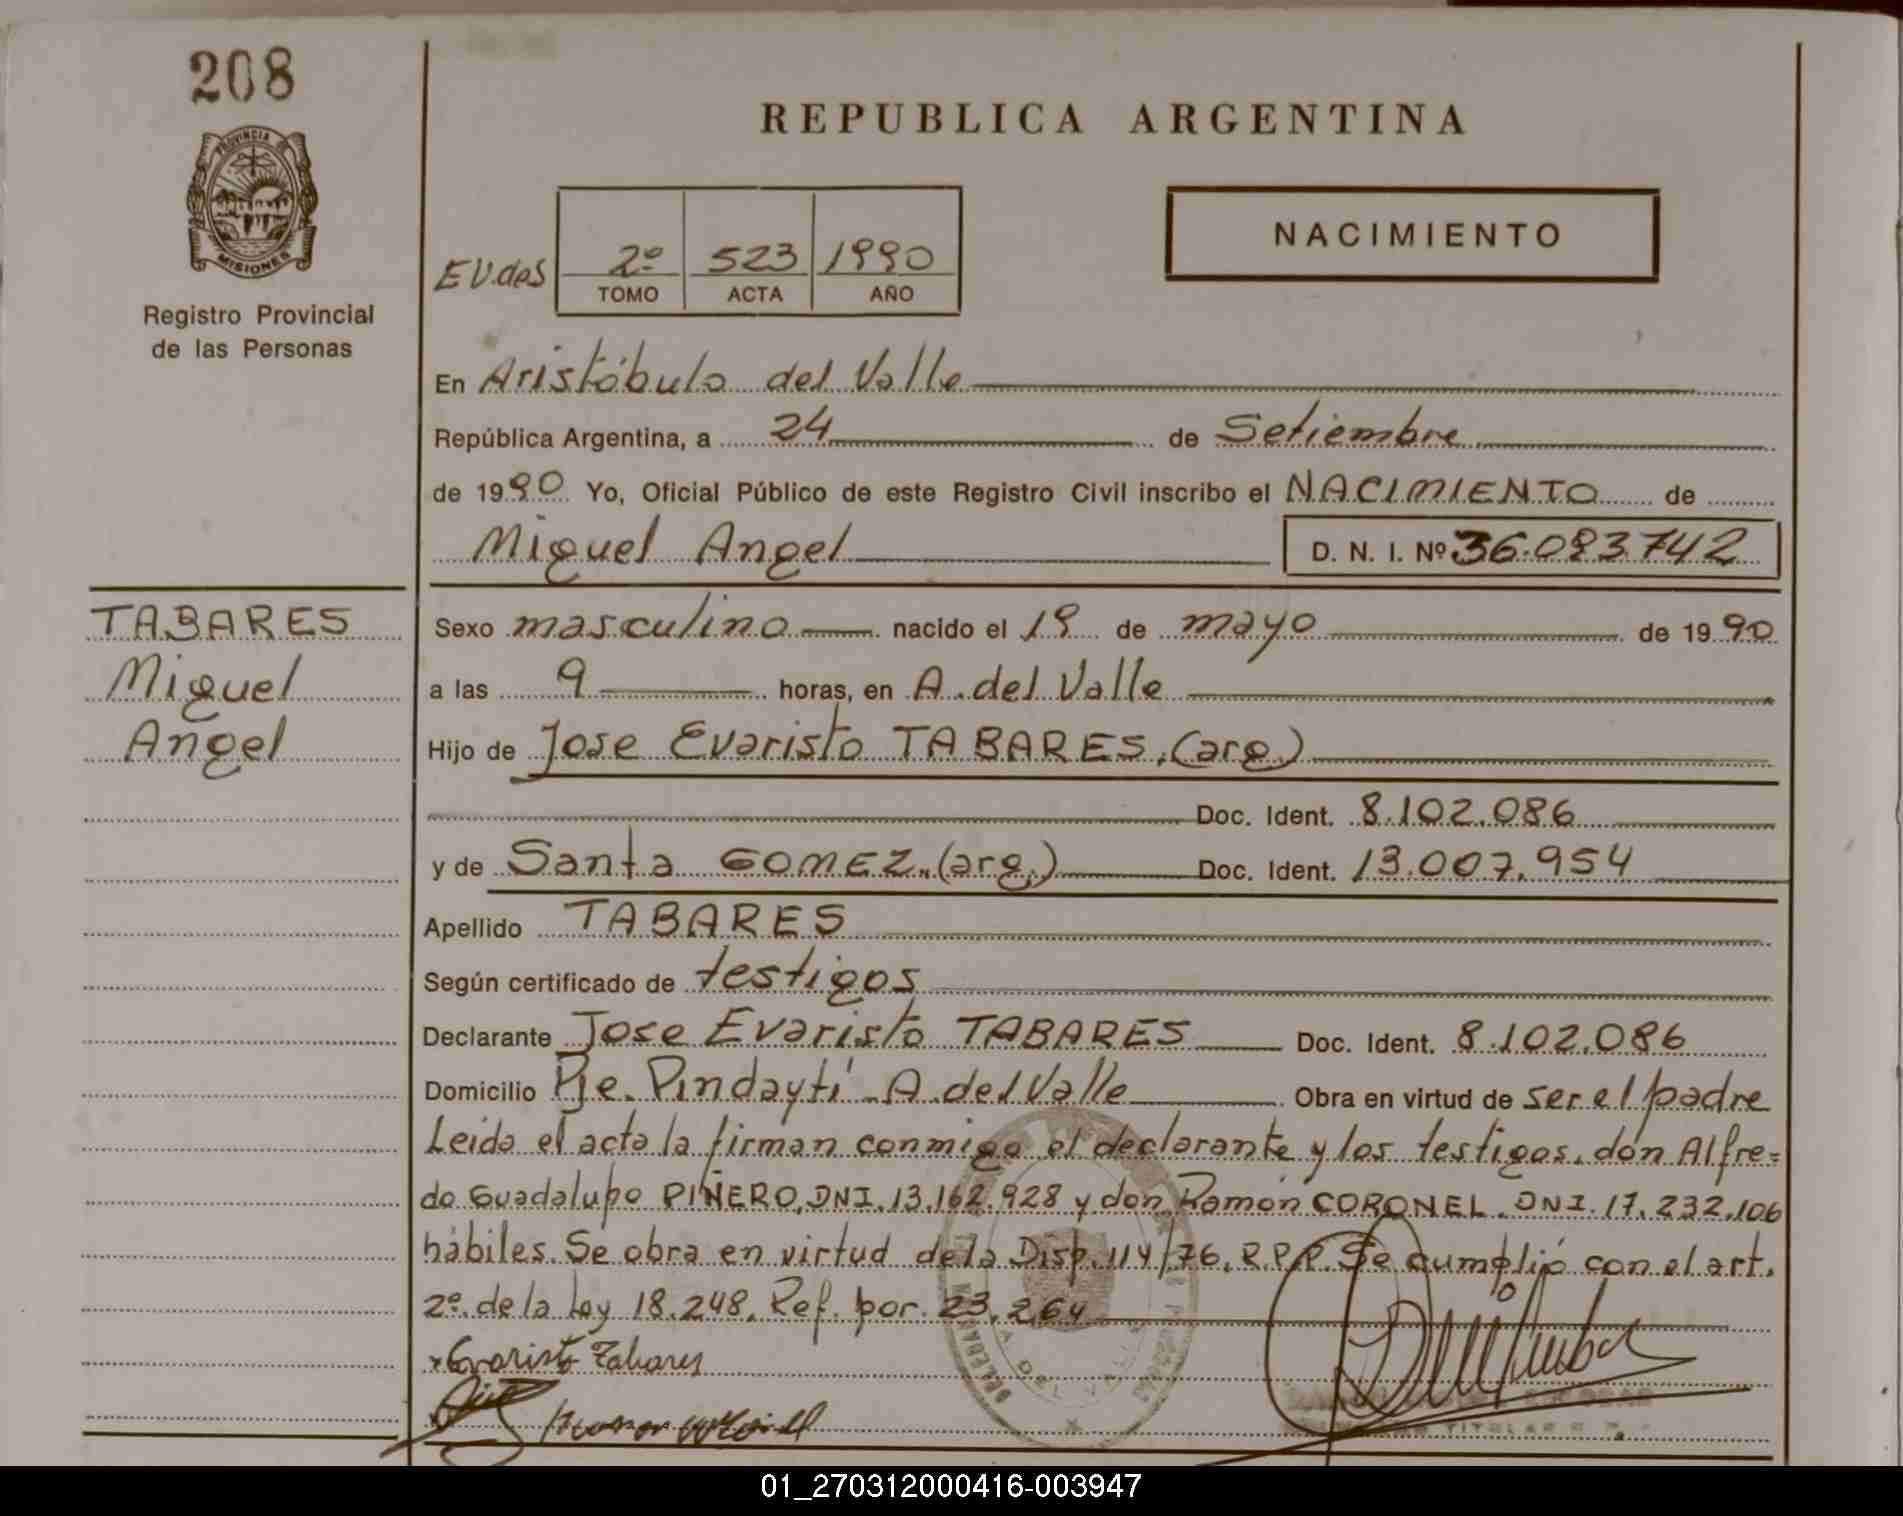 208
PROVINCIA DE
MISIONES
Registro Provincial
de las Personas
REPUBLICA ARGENTINA
NACIMIENTO
EV.des
2º 523 1990
TOMO ACTA AÑO
En Aristóbulo del Valle
República Argentina, a 24 de Setiembre
de 1990 Yo, Oficial Público de este Registro Civil inscribo el NACIMIENTO de
Miguel Angel D. N. I. Nº 36.083.742
TABARES
Miguel
Angel
Sexo masculino nacido el 19 de mayo de 1990
a las 9 horas, en A. del Valle
Hijo de Jose Evaristo TABARES, (arg.)
Doc. Ident. 8.102.086
y de Santa GOMEZ. (arg.) Doc. Ident. 13.007.954
Apellido TABARES
Según certificado de testigos
Declarante Jose Evaristo TABARES Doc. Ident. 8.102.086
Domicilio Pje. Pindaytí - A. del Valle Obra en virtud de ser el padre
Leida el acta la firman conmigo el declarante y los testigos, don Alfre=
do Guadalupo PIÑERO, DNI. 13.162.928 y don Ramón CORONEL. DNI. 17.232.106
hábiles. Se obra en virtud de la Disp. 114/76. R.P.P. Se cumplió con el art.
2º de la ley 18.248. Ref. por. 23.264
x Evaristo Tabares
A. DEL VALLE
TITULAR
01_270312000416-003947